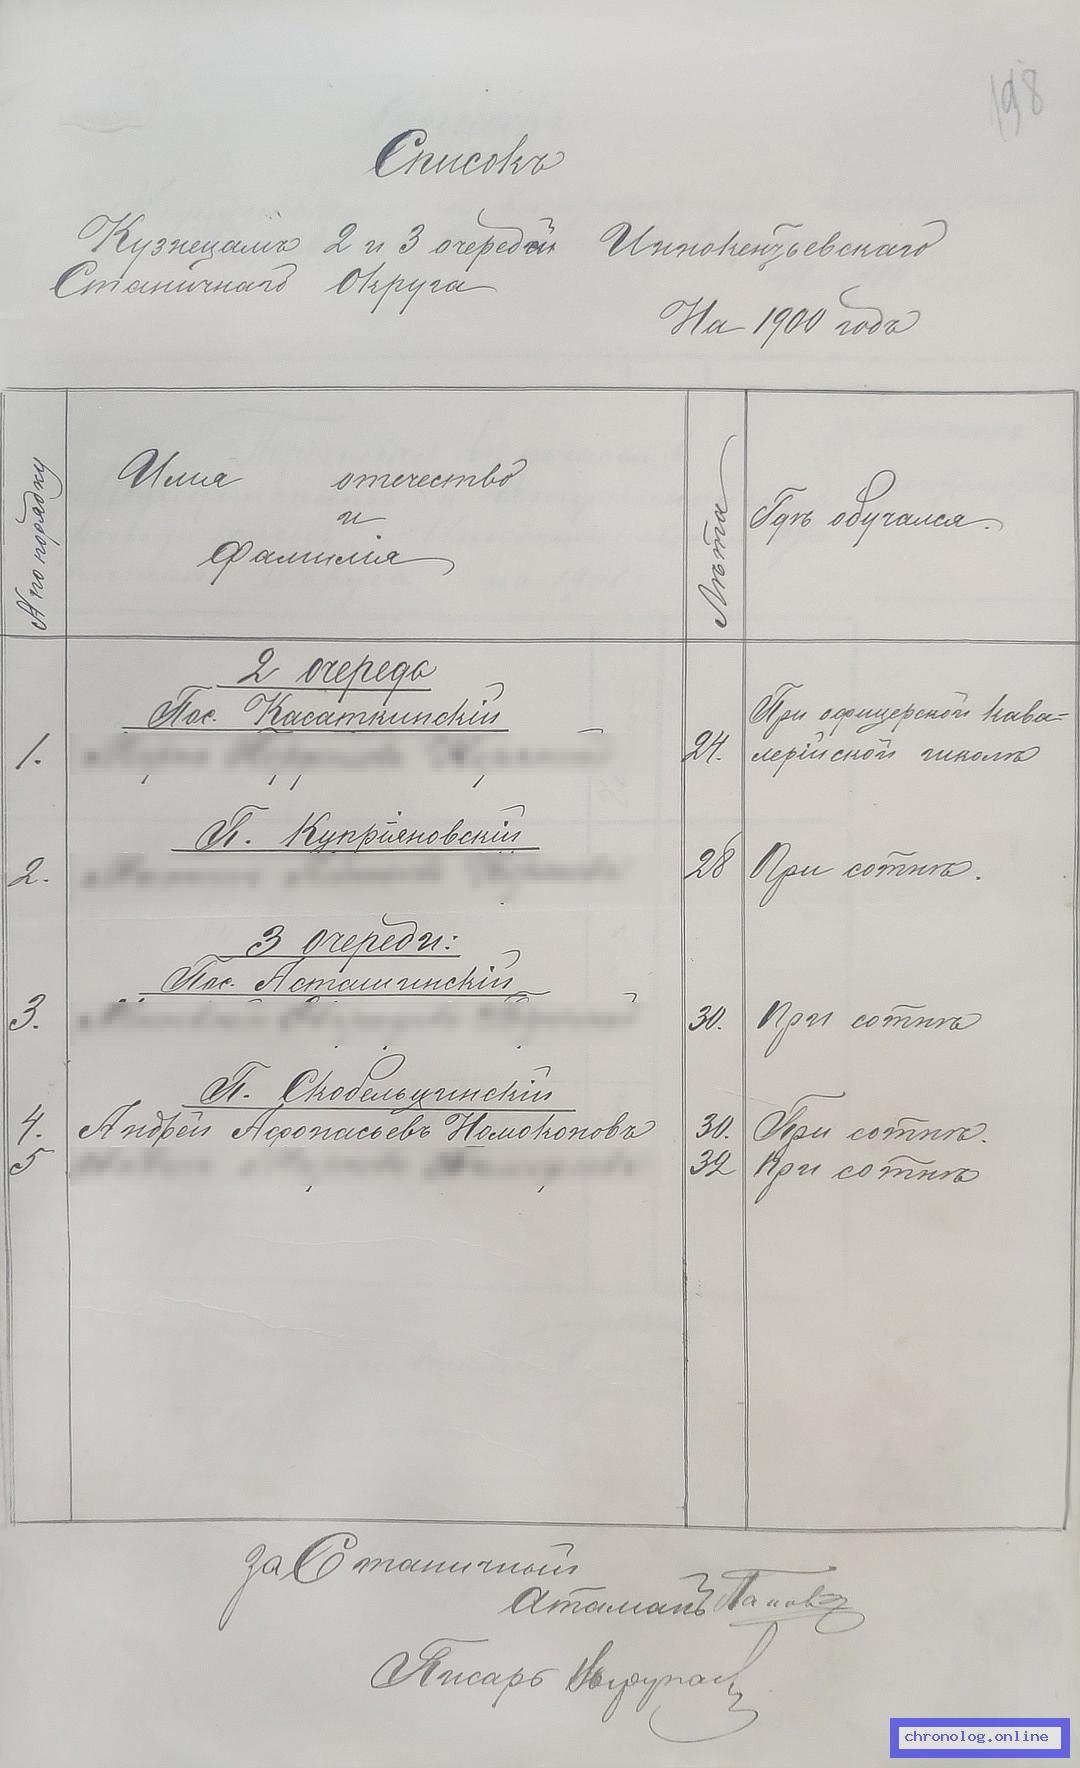 198
Списокъ
Кузнецамъ 2 и 3 очередей Иннокентьевскаго
Станичнаго Округа
На 1900 годъ
№ по порядку
Имя отечество
и
Фамилія
Лѣта
Гдѣ обучался.
2 очередь
Пос. Касаткинскій
1. 24. При офицерской кава=
лерійской школѣ
П. Купріяновскій
2. 28 При сотнѣ.
3 очереди:
Пос. Асташинскій
3. 30. При сотнѣ
П. Скобельцинскій
4. Андрей Афонасьевъ Номоконовъ 30. При сотнѣ.
5 32 При сотнѣ
За Станичной
Атаманъ Паповъ
Писарь
chronolog.online